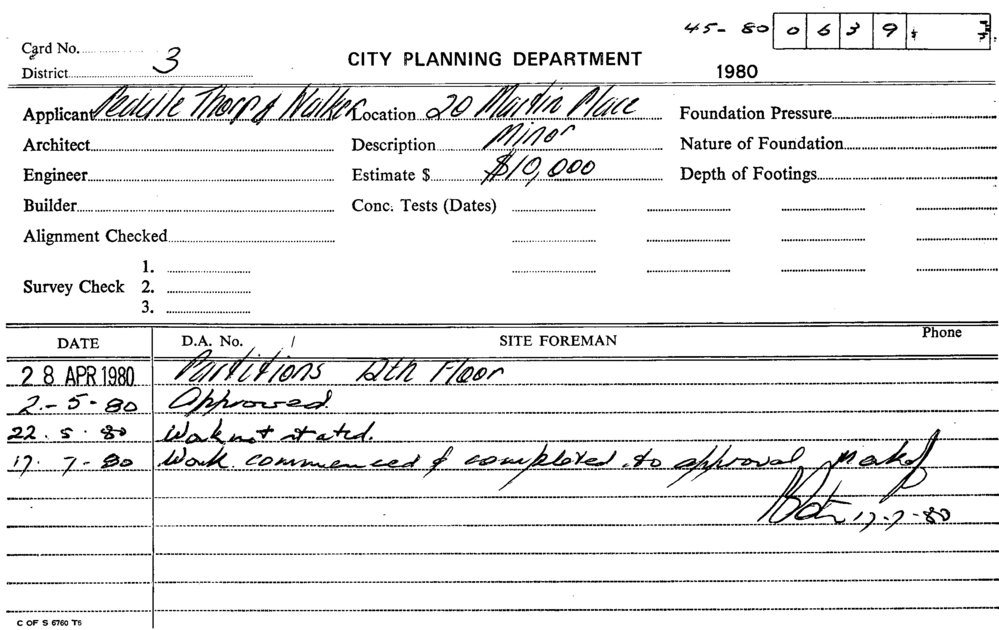 45-80 0639
Card No.
District 3
CITY PLANNING DEPARTMENT
1980
Applicant Peddle Thorp & Walker Location 20 Martin Place Foundation Pressure
Architect Description Minor Nature of Foundation
Engineer Estimate $ $10,000 Depth of Footings
Builder Conc. Tests (Dates)
Alignment Checked
1.
Survey Check 2.
3.
DATE D.A. No. SITE FOREMAN Phone
28 APR 1980 Partitions Floor
2-5-80 Approved.
22.5.80 Work not stated.
17.7-80 Work commenced & completed to approval
17-7-80
C OF S 6760 T6